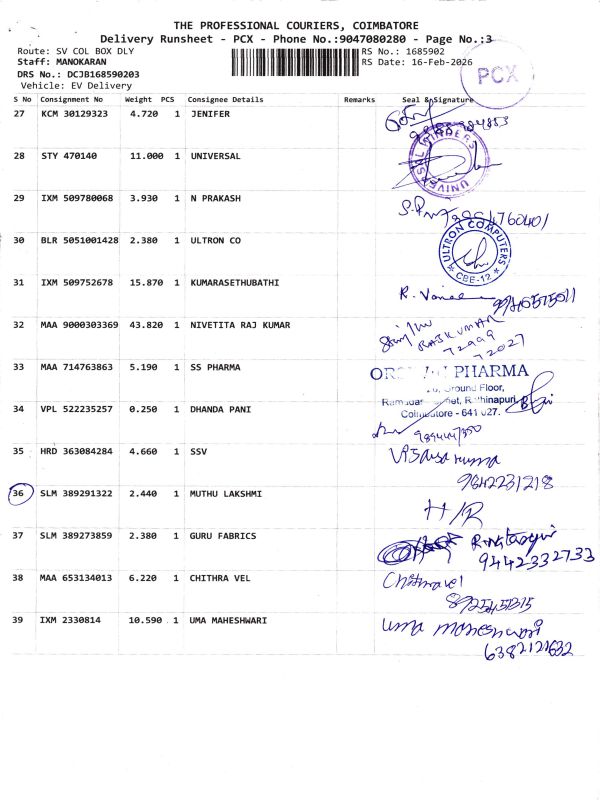 THE PROFESSIONAL COURIERS, COIMBATORE
Delivery Runsheet - PCX - Phone No.:9047080280 - Page No.:3
Route: SV COL BOX DLY
RS No.: 1685902
Staff: MANOKARAN
RS Date: 16-Feb-2026
DRS No.: DCJB168590203
Vehicle: EV Delivery
PCX
S No Consignment No Weight PCS Consignee Details Remarks Seal & Signature
27 KCM 30129323 4.720 1 JENIFER
28 STY 470140 11.000 1 UNIVERSAL
UNIVERSAL TRADERS
29 IXM 509780068 3.930 1 N PRAKASH
30 BLR 5051001428 2.380 1 ULTRON CO
ULTRON COMPUTERS
* CBE-12 *
31 IXM 509752678 15.870 1 KUMARASETHUBATHI
32 MAA 9000303369 43.820 1 NIVETITA RAJ KUMAR
RAJKUMAR
72999
72027
33 MAA 714763863 5.190 1 SS PHARMA
PHARMA
Ground Floor,
Coimbatore - 641 027.
34 VPL 522235257 0.250 1 DHANDA PANI
35 HRD 363084284 4.660 1 SSV
9842231218
36 SLM 389291322 2.440 1 MUTHU LAKSHMI
H/R
37 SLM 389273859 2.380 1 GURU FABRICS
9442332733
38 MAA 653134013 6.220 1 CHITHRA VEL
Chithravel
39 IXM 2330814 10.590 1 UMA MAHESHWARI
uma maheswari
6382121632